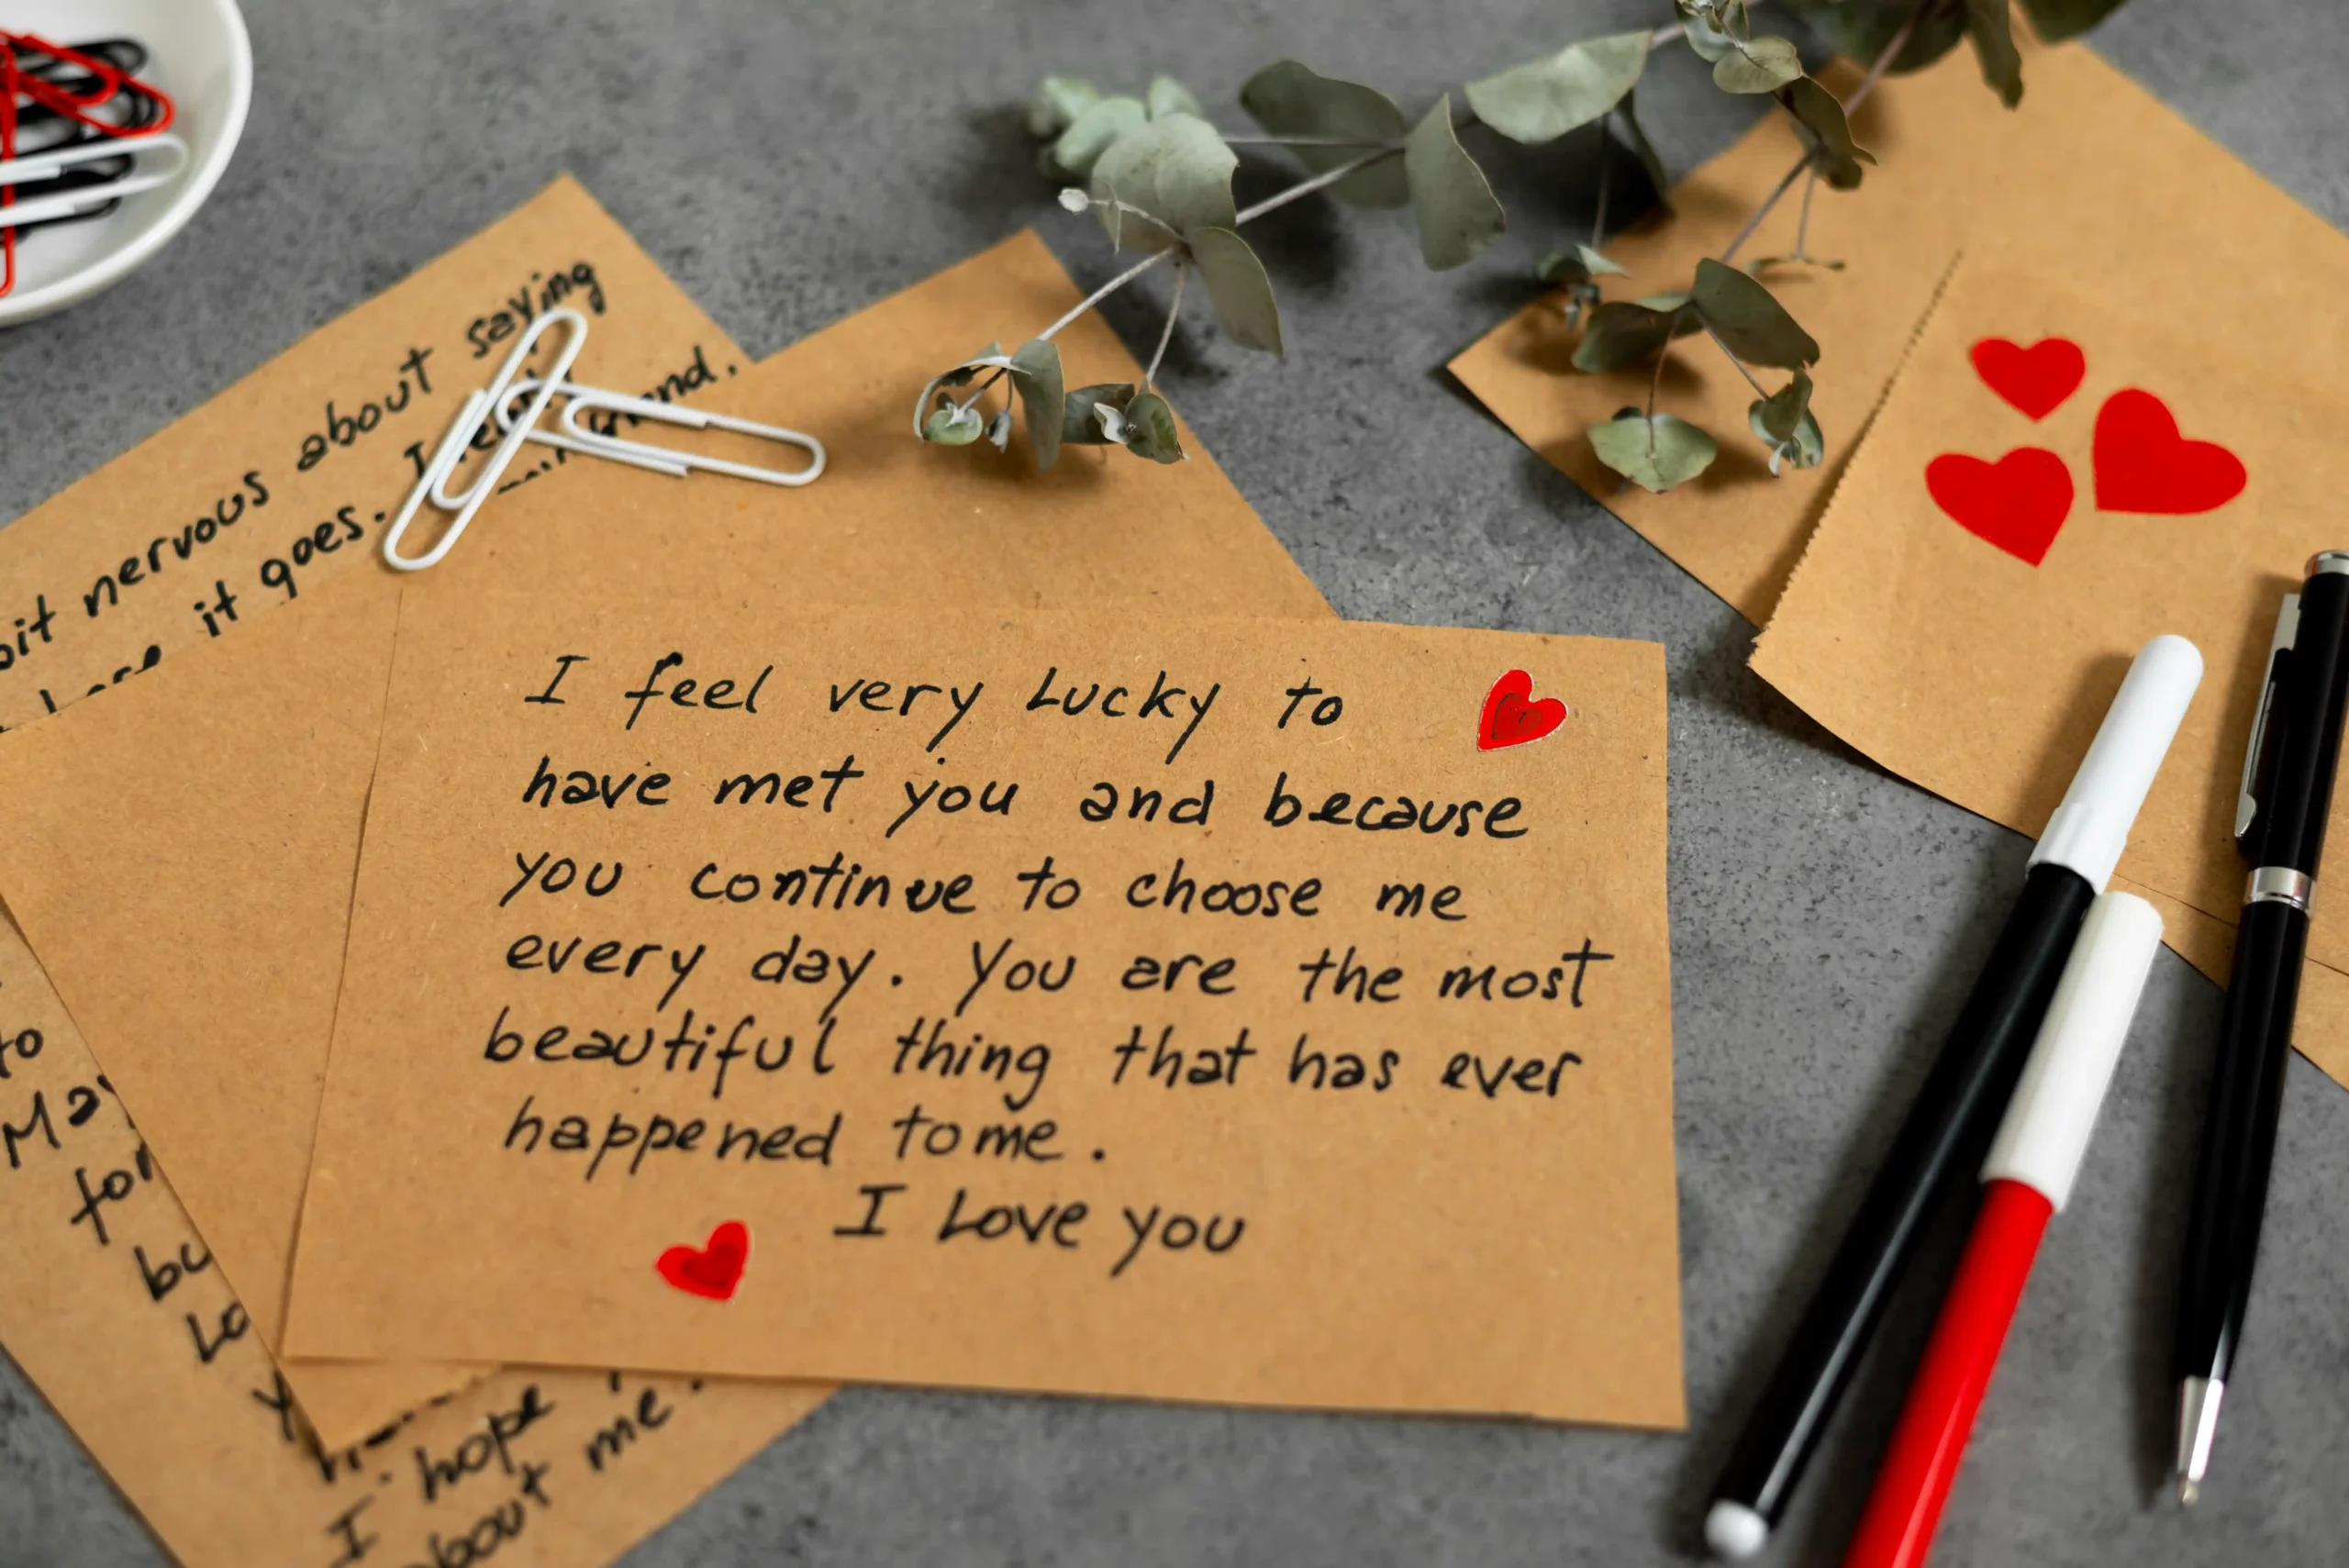 nervous about saying
it goes. I
I feel very Lucky to
have met you and because
you continue to choose me
every day. You are the most
beautiful thing that has ever
happened to me.
I Love you
to
for
I hope
about me.